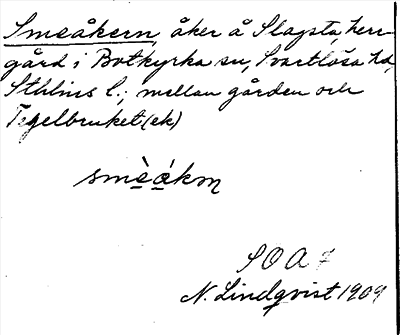 Smeåkern, åker å Slagsta, herr-
gård i Botkyrka sn, Svartlösa hd,
Sthlms l.; mellan gården och
Tegelbruket (ek)
smèåkɷn
SOA
N. Lindqvist 1909